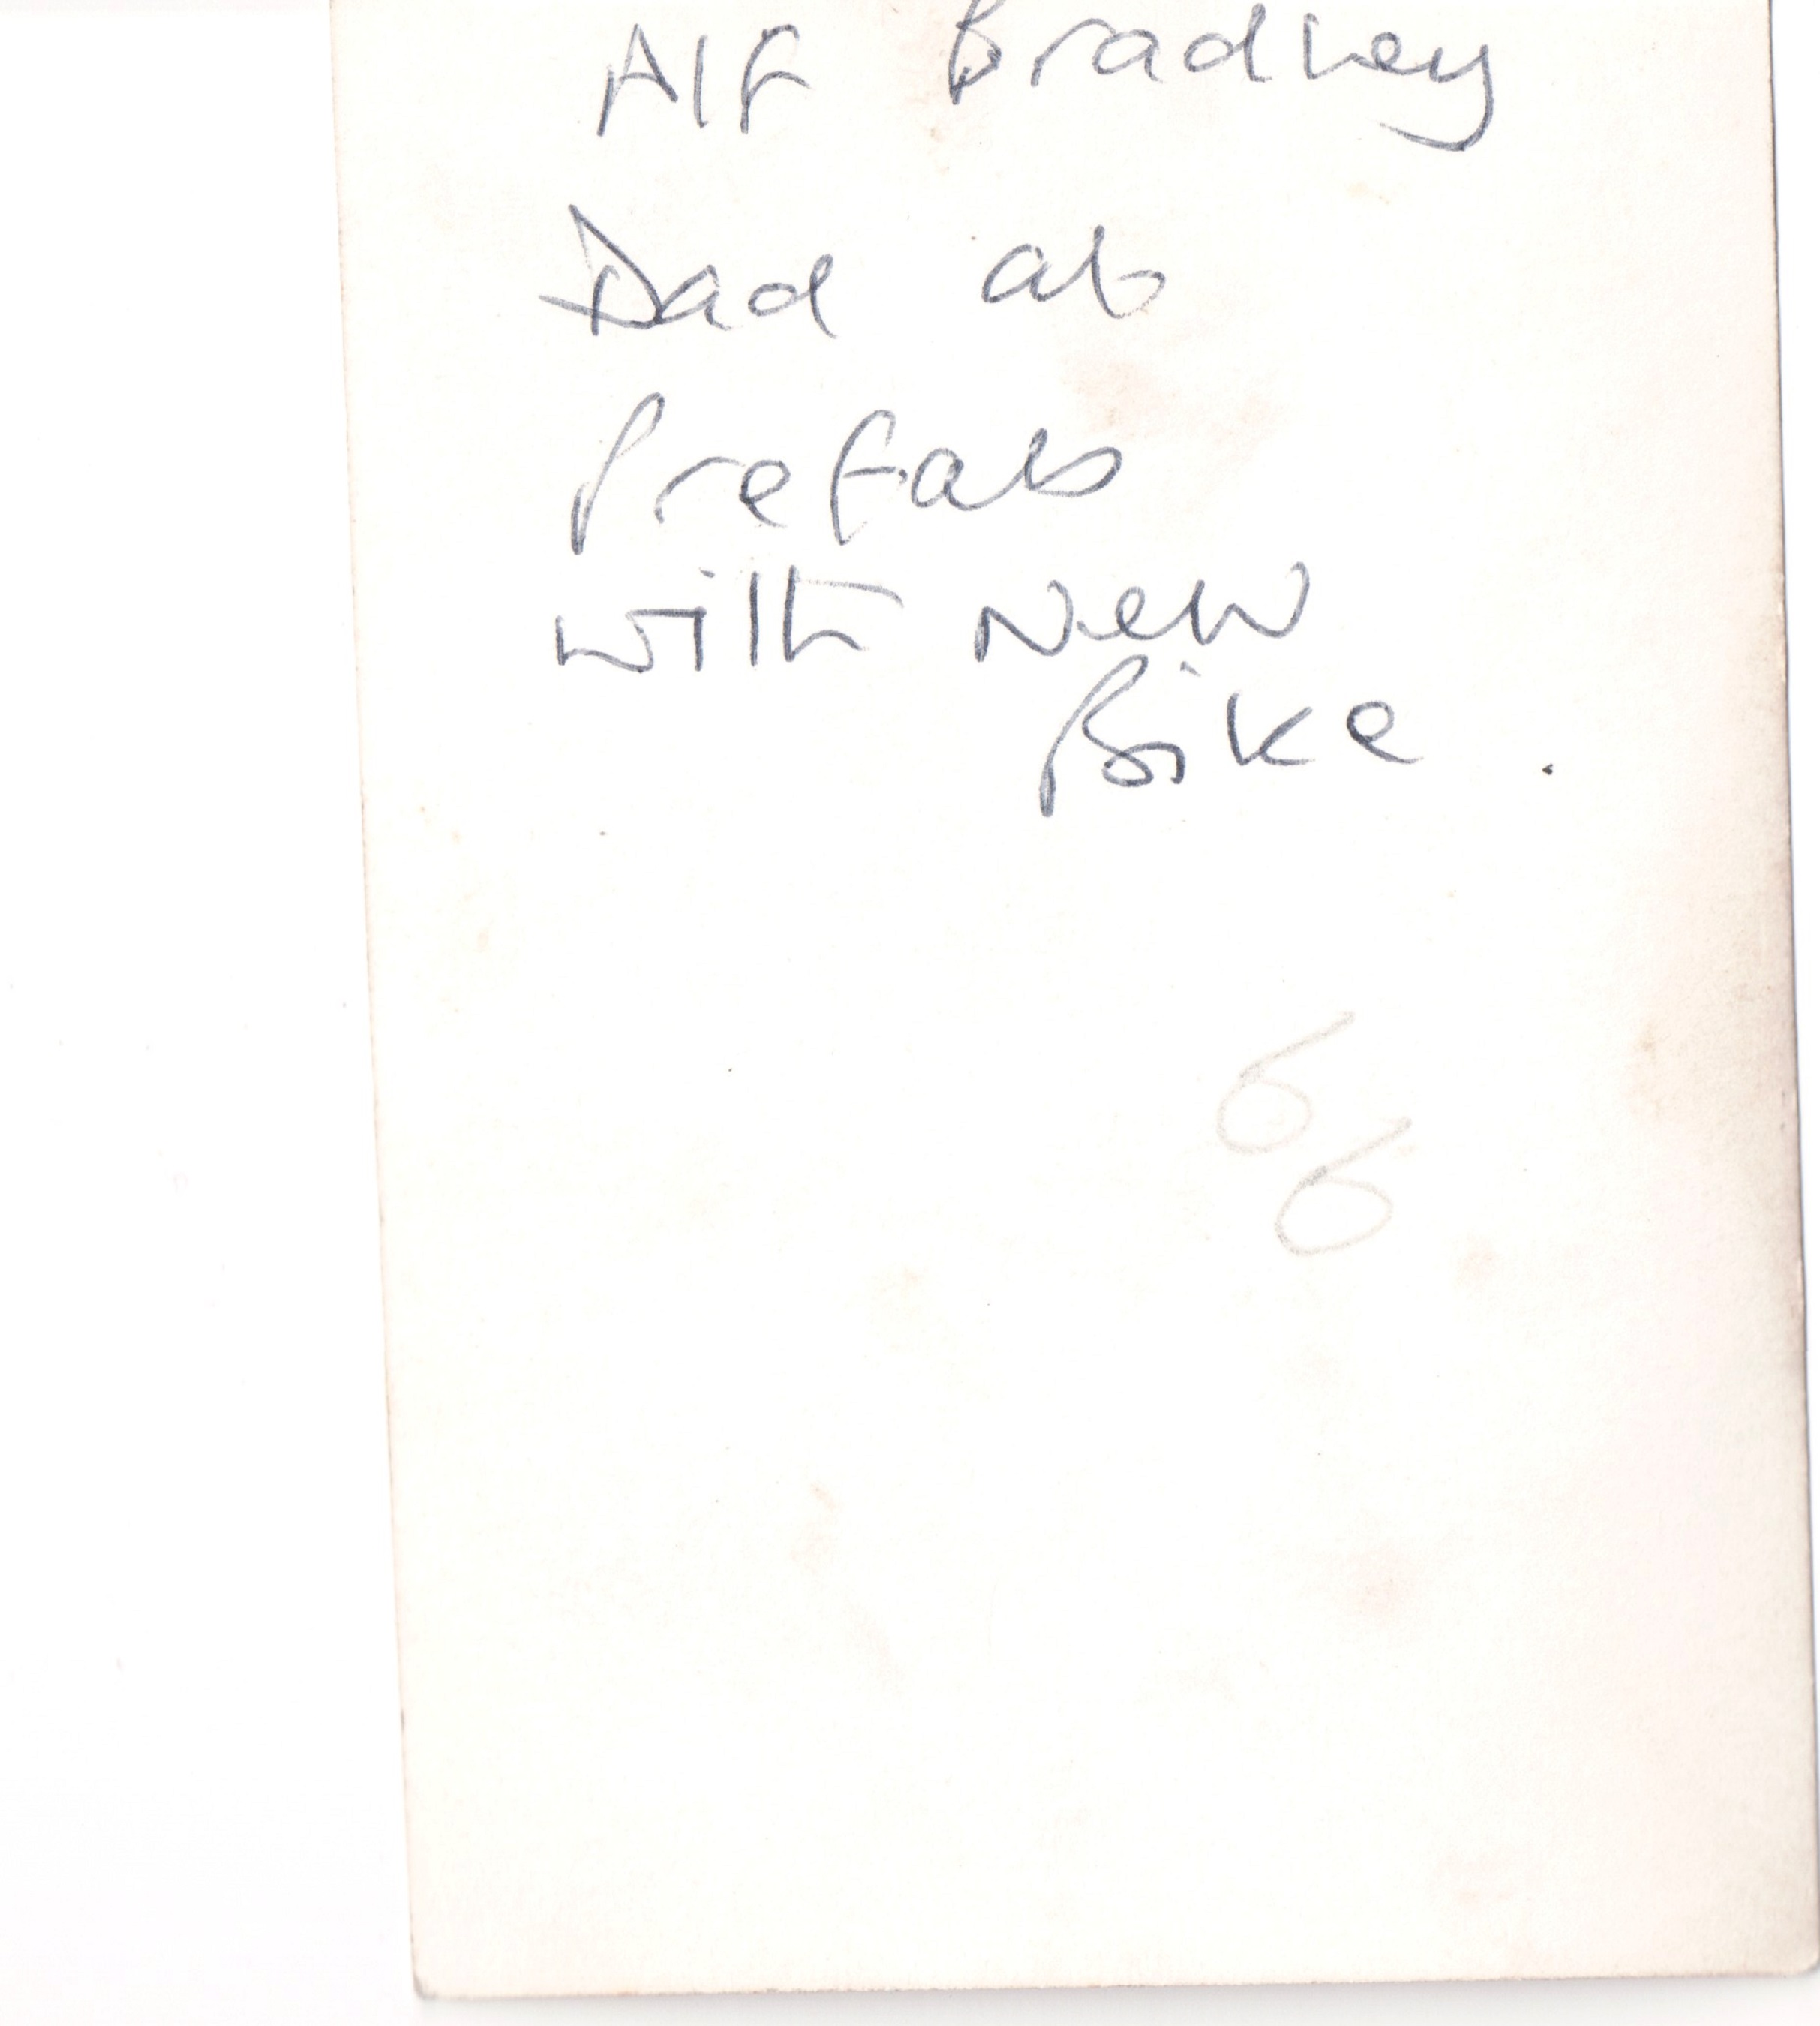 Alf Bradley
Dad at
Prefab
with New
Bike.
66